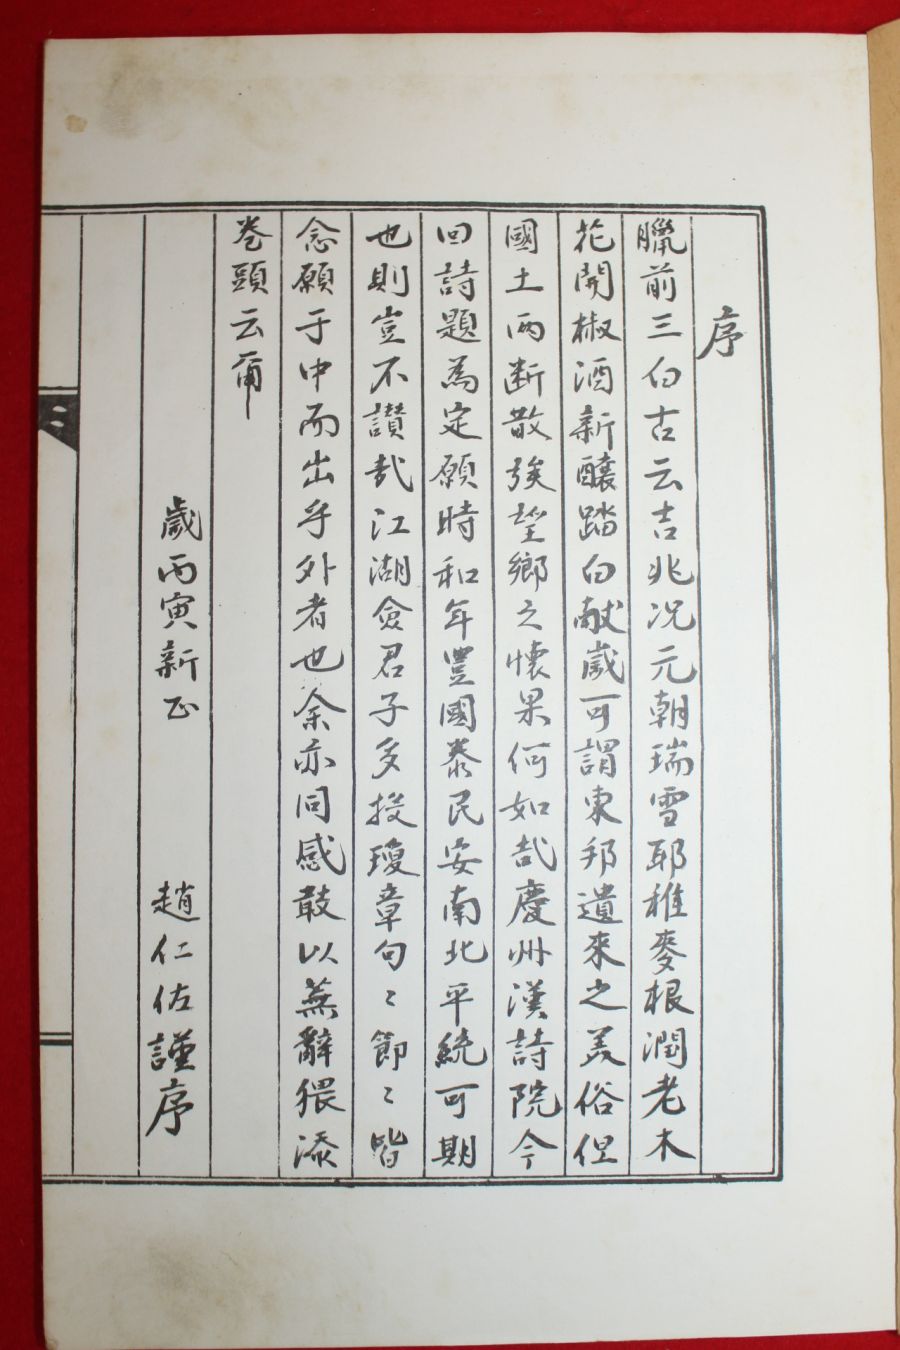 序
臘前三白古云吉兆况元朝瑞雪耶稚麥根潤老木
花開椒酒新釀踏白献歲可謂東邦遺來之美俗但
國土两断散族望鄉之懷果何如哉慶州漢詩院今
回詩題為定願時和年豐國泰民安南北平統可期
也則豈不讃哉江湖僉君子多投瓊章句〻節〻皆
念願于中而出乎外者也余亦同感敢以蕪辭猥添
卷頭云爾
歲丙寅新正 趙仁佑謹序
二